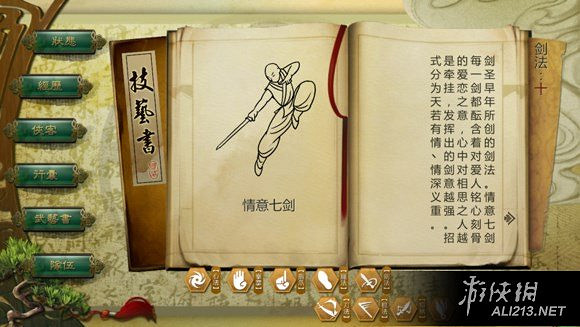 狀態
經歷
俠客
行囊
武藝書
隊伍
技藝書
情意七剑
剑法:十
剑圣早年所创的剑法。情意七剑
每一剑都酝含着对爱人铭心刻骨
的爱恋之意,心中对相思之人越
是牵挂,发挥出的剑意越强。招
式分为天若有情、情深义重。
游侠网
ALI213.NET